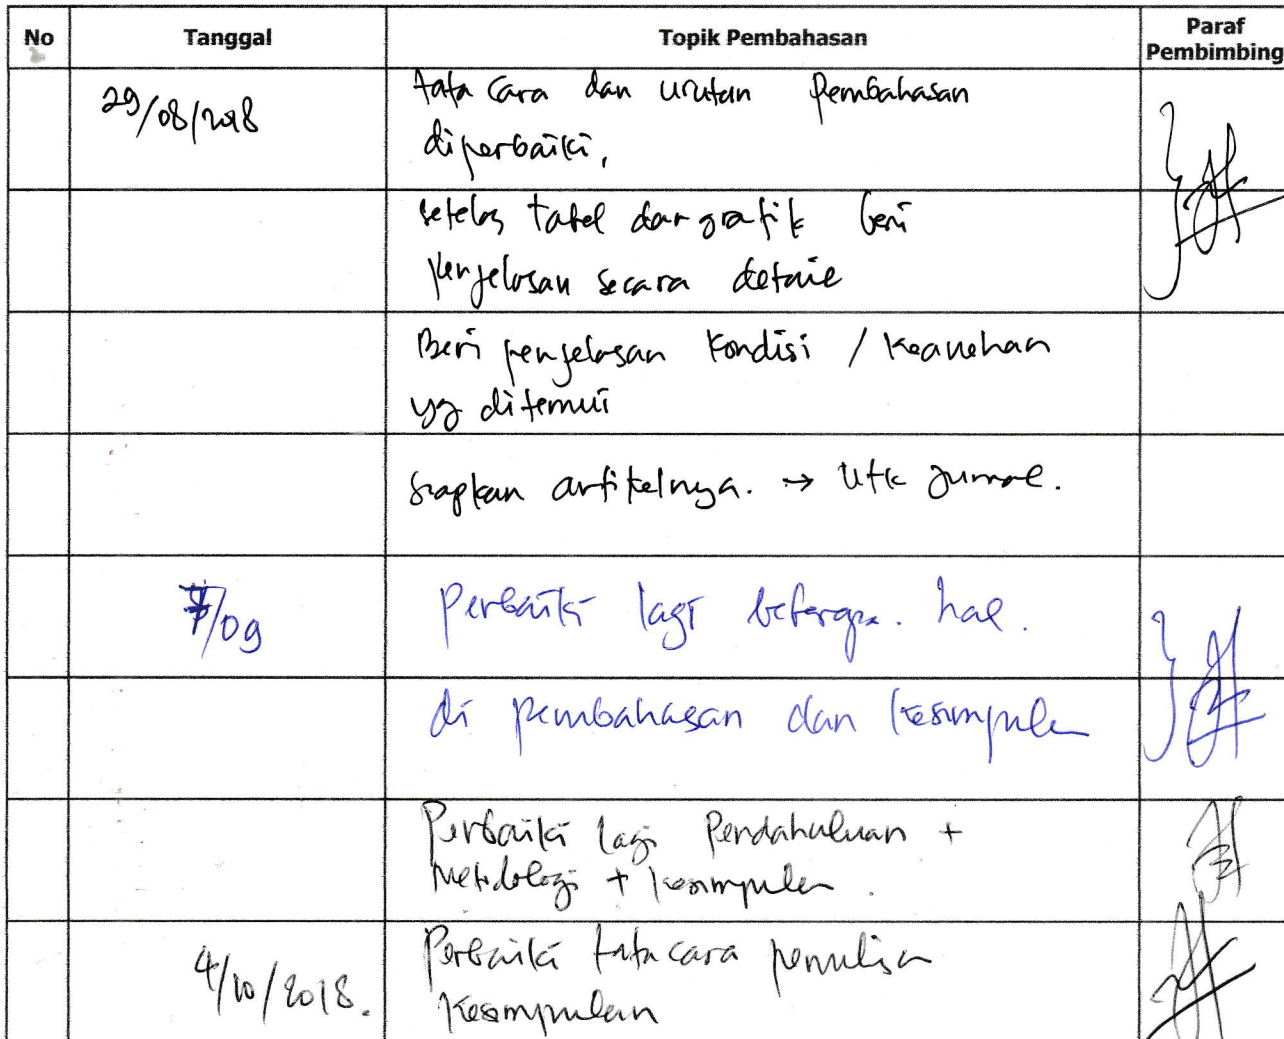 No Tanggal Topik Pembahasan Paraf
Pembimbing
29/08/2018 tata cara dan urutan pembahasan
diperbaiki,
setelah tabel dan grafik beri
penjelasan secara detail
Beri penjelasan kondisi / keanehan
yg ditemui
siapkan artikelnya. → utk jurnal.
7/09 Perbaiki lagi beberapa. hal.
di pembahasan dan kesimpulan
Perbaiki lagi Pendahuluan +
Metodologi + kesimpulan.
4/10/2018. Perbaiki tata cara penulisan
Kesimpulan